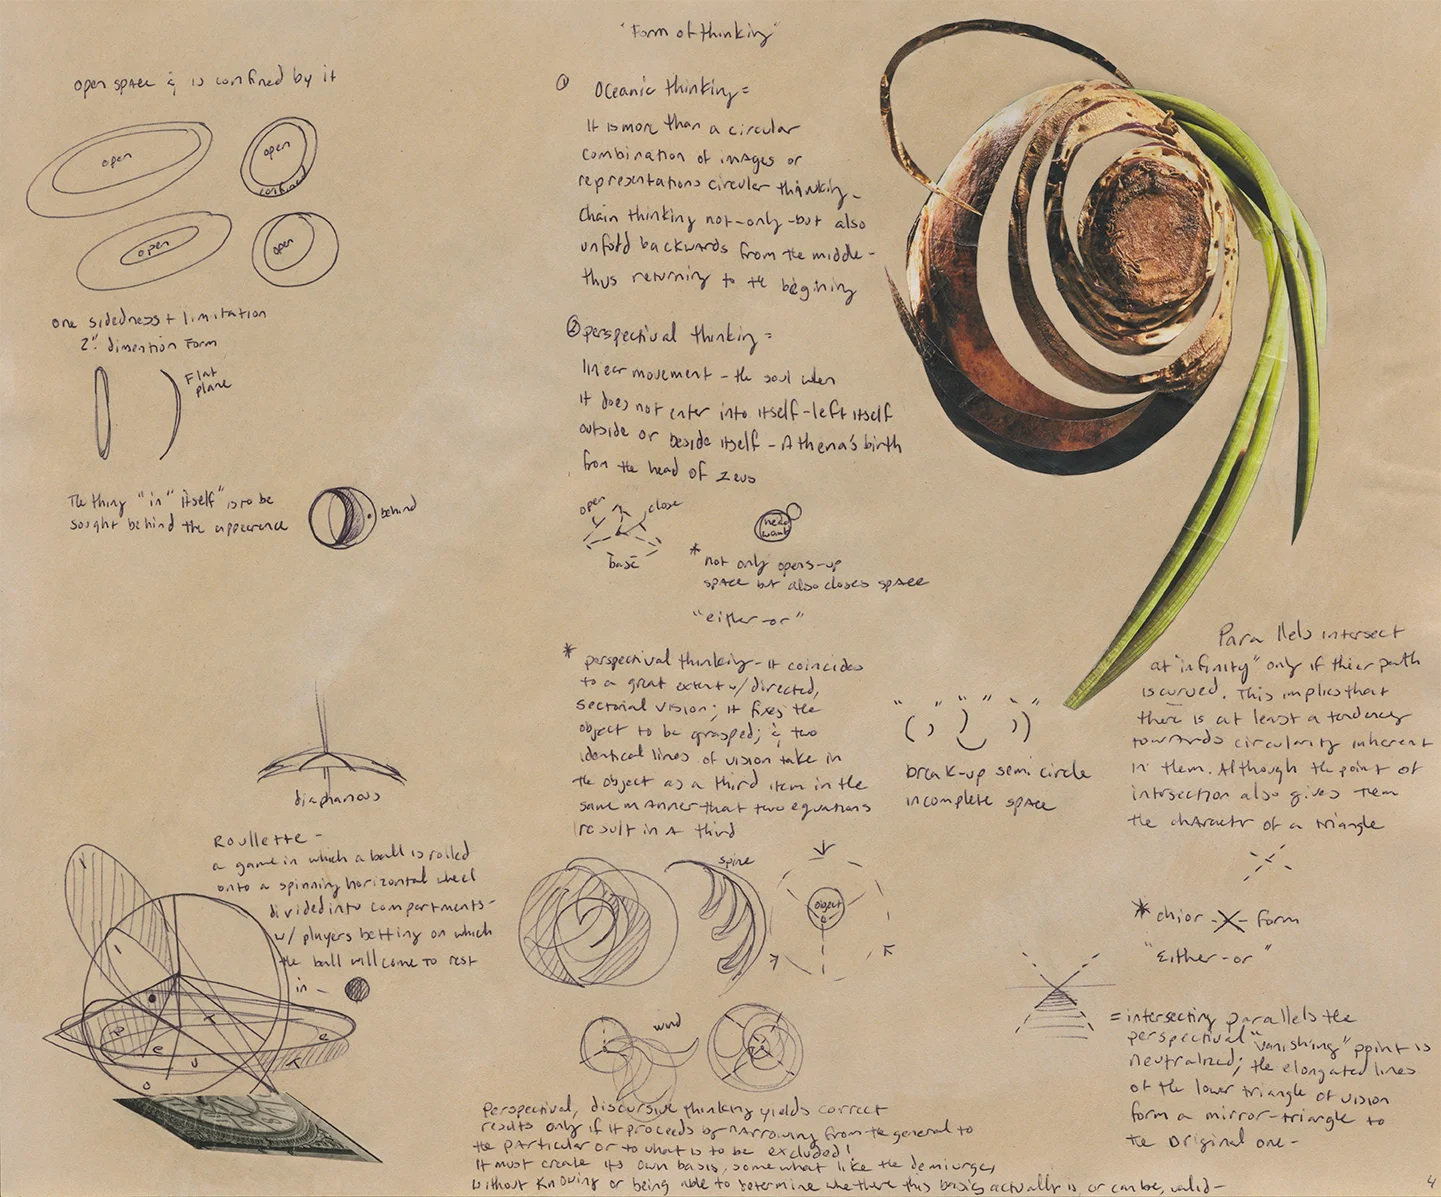 "Form of thinking"
open space & is confined by it
open
open
confined
open
open
one sidedness + limitation
2" dimention Form
Flat
plane
The thing "in" itself" is to be
sought behind the appearence
behind
diaphanous
Roullette -
a game in which a ball is rolled
onto a spinning horizontal wheel
divided into compartments -
w/ players betting on which
the ball will come to rest
in -
① Oceanic thinking =
It is more than a circular
combination of images or
representations circular thinking -
Chain thinking not-only-but also
unfold backwards from the middle -
thus returning to the begining
② perspectival thinking =
linear movement - the soul when
it does not enter into itself - left itself
outside or beside itself - Athena's birth
from the head of Zeus
open
close
base
head
* not only opens-up
space but also closes space
"either-or"
* perspectival thinking - it coincides
to a great extent w/ directed,
sectorial vision; it fixes the
object to be grasped; & two
identical lines of vision take in
the object as a third item in the
same manner that two equations
result in a third
spine
object
wind
Perspectival, discursive thinking yields correct
results only if it proceeds by narrowing from the general to
the particular or to what is to be excluded!
It must create its own basis, somewhat like the demiurge,
without knowing or being able to determine whether this basis actually is, or can be, valid -
break-up semi circle
incomplete space
Parallels intersect
at "infinity" only if thier path
is curved. This implies that
there is at least a tendency
towards circularity inherent
in them. Although the point of
intersection also gives them
the charactr of a triangle
* chior -X- form
"Either-or"
= intersecting parallels the
perspectival "vanishing" point is
neutralized; the elongated lines
of the lower triangle of vision
form a mirror-triangle to
the original one -
4